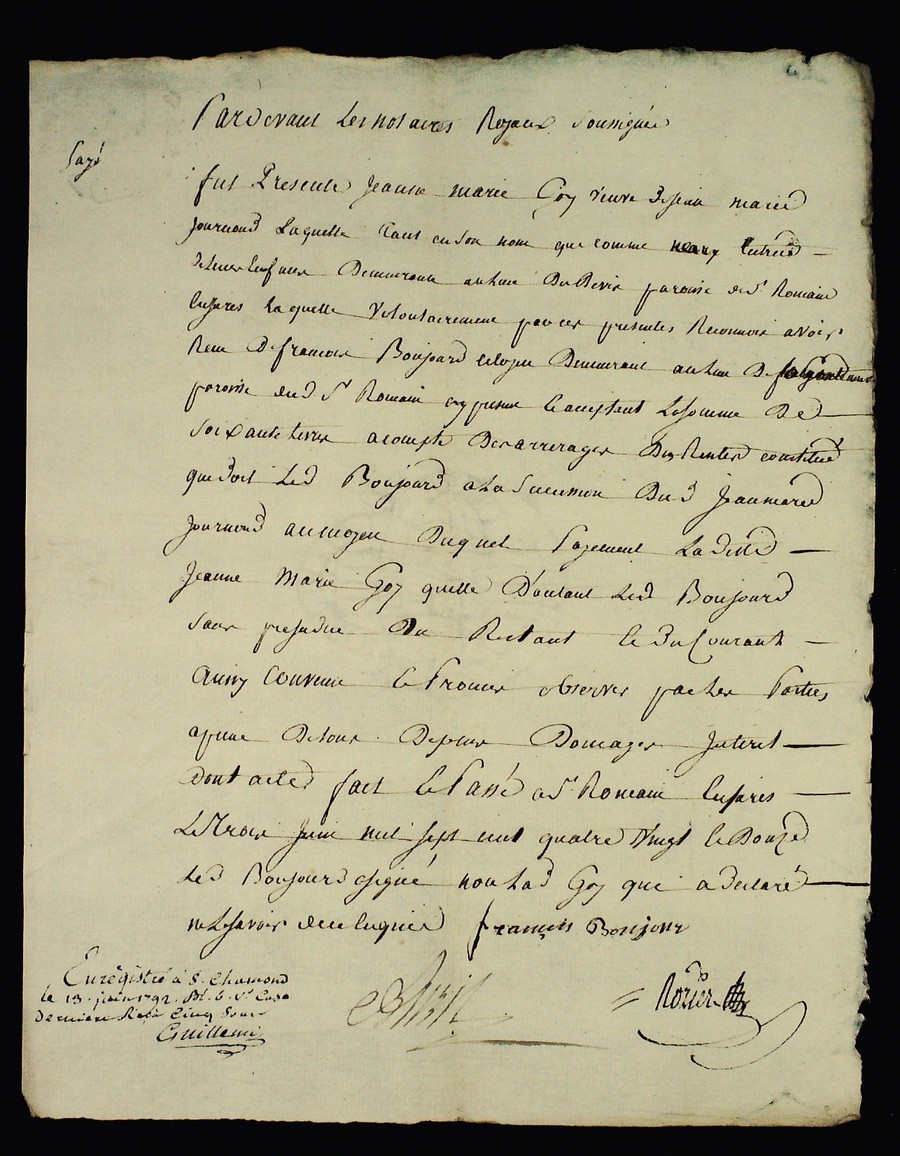 Pardevant Les notaires Royaux Soussignés
payé
fut Presente Jeanne marie Goy veuve De Jean marie
Journoud Laquelle tant en son nom que comme
Demeurant au lieu Du paroisse de St Romain
En Jares Laquelle Volontairement par ces presentes Reconnois avoir
Recu De francois Boujourd citoyen Demeurant au lieu De
paroisse dud St Romain cy present Et acceptant La somme De
Soixante livres a compte Des arrerages Des Rentes constitué
que doit Led Boujourd a La Succession Dud Jean marie
Journoud au moyen Duquel Payement Laditte
Jeanne Marie Goy quitte D'autant Led Boujourd
sans prejudice Du Restant Et Du Courant
Ainsy Convenu Et Promis observer par Les Parties
a peine De tous Depens Domages Interet
Dont acte fait Et Passé a St Romain En Jares
Le Trois Juin mil sept cent quatre Vingt Et Douze
Led Boujourd a signé non Lad Goy qui a declaré
ne Savoir de ce Enquise francois Bonjour
Enregistré à S. Chamond
le 13. juin 1792. Rt. 6. Vo. Case
Derniere Reçu Cinq Sous
Guillemin
Rorier